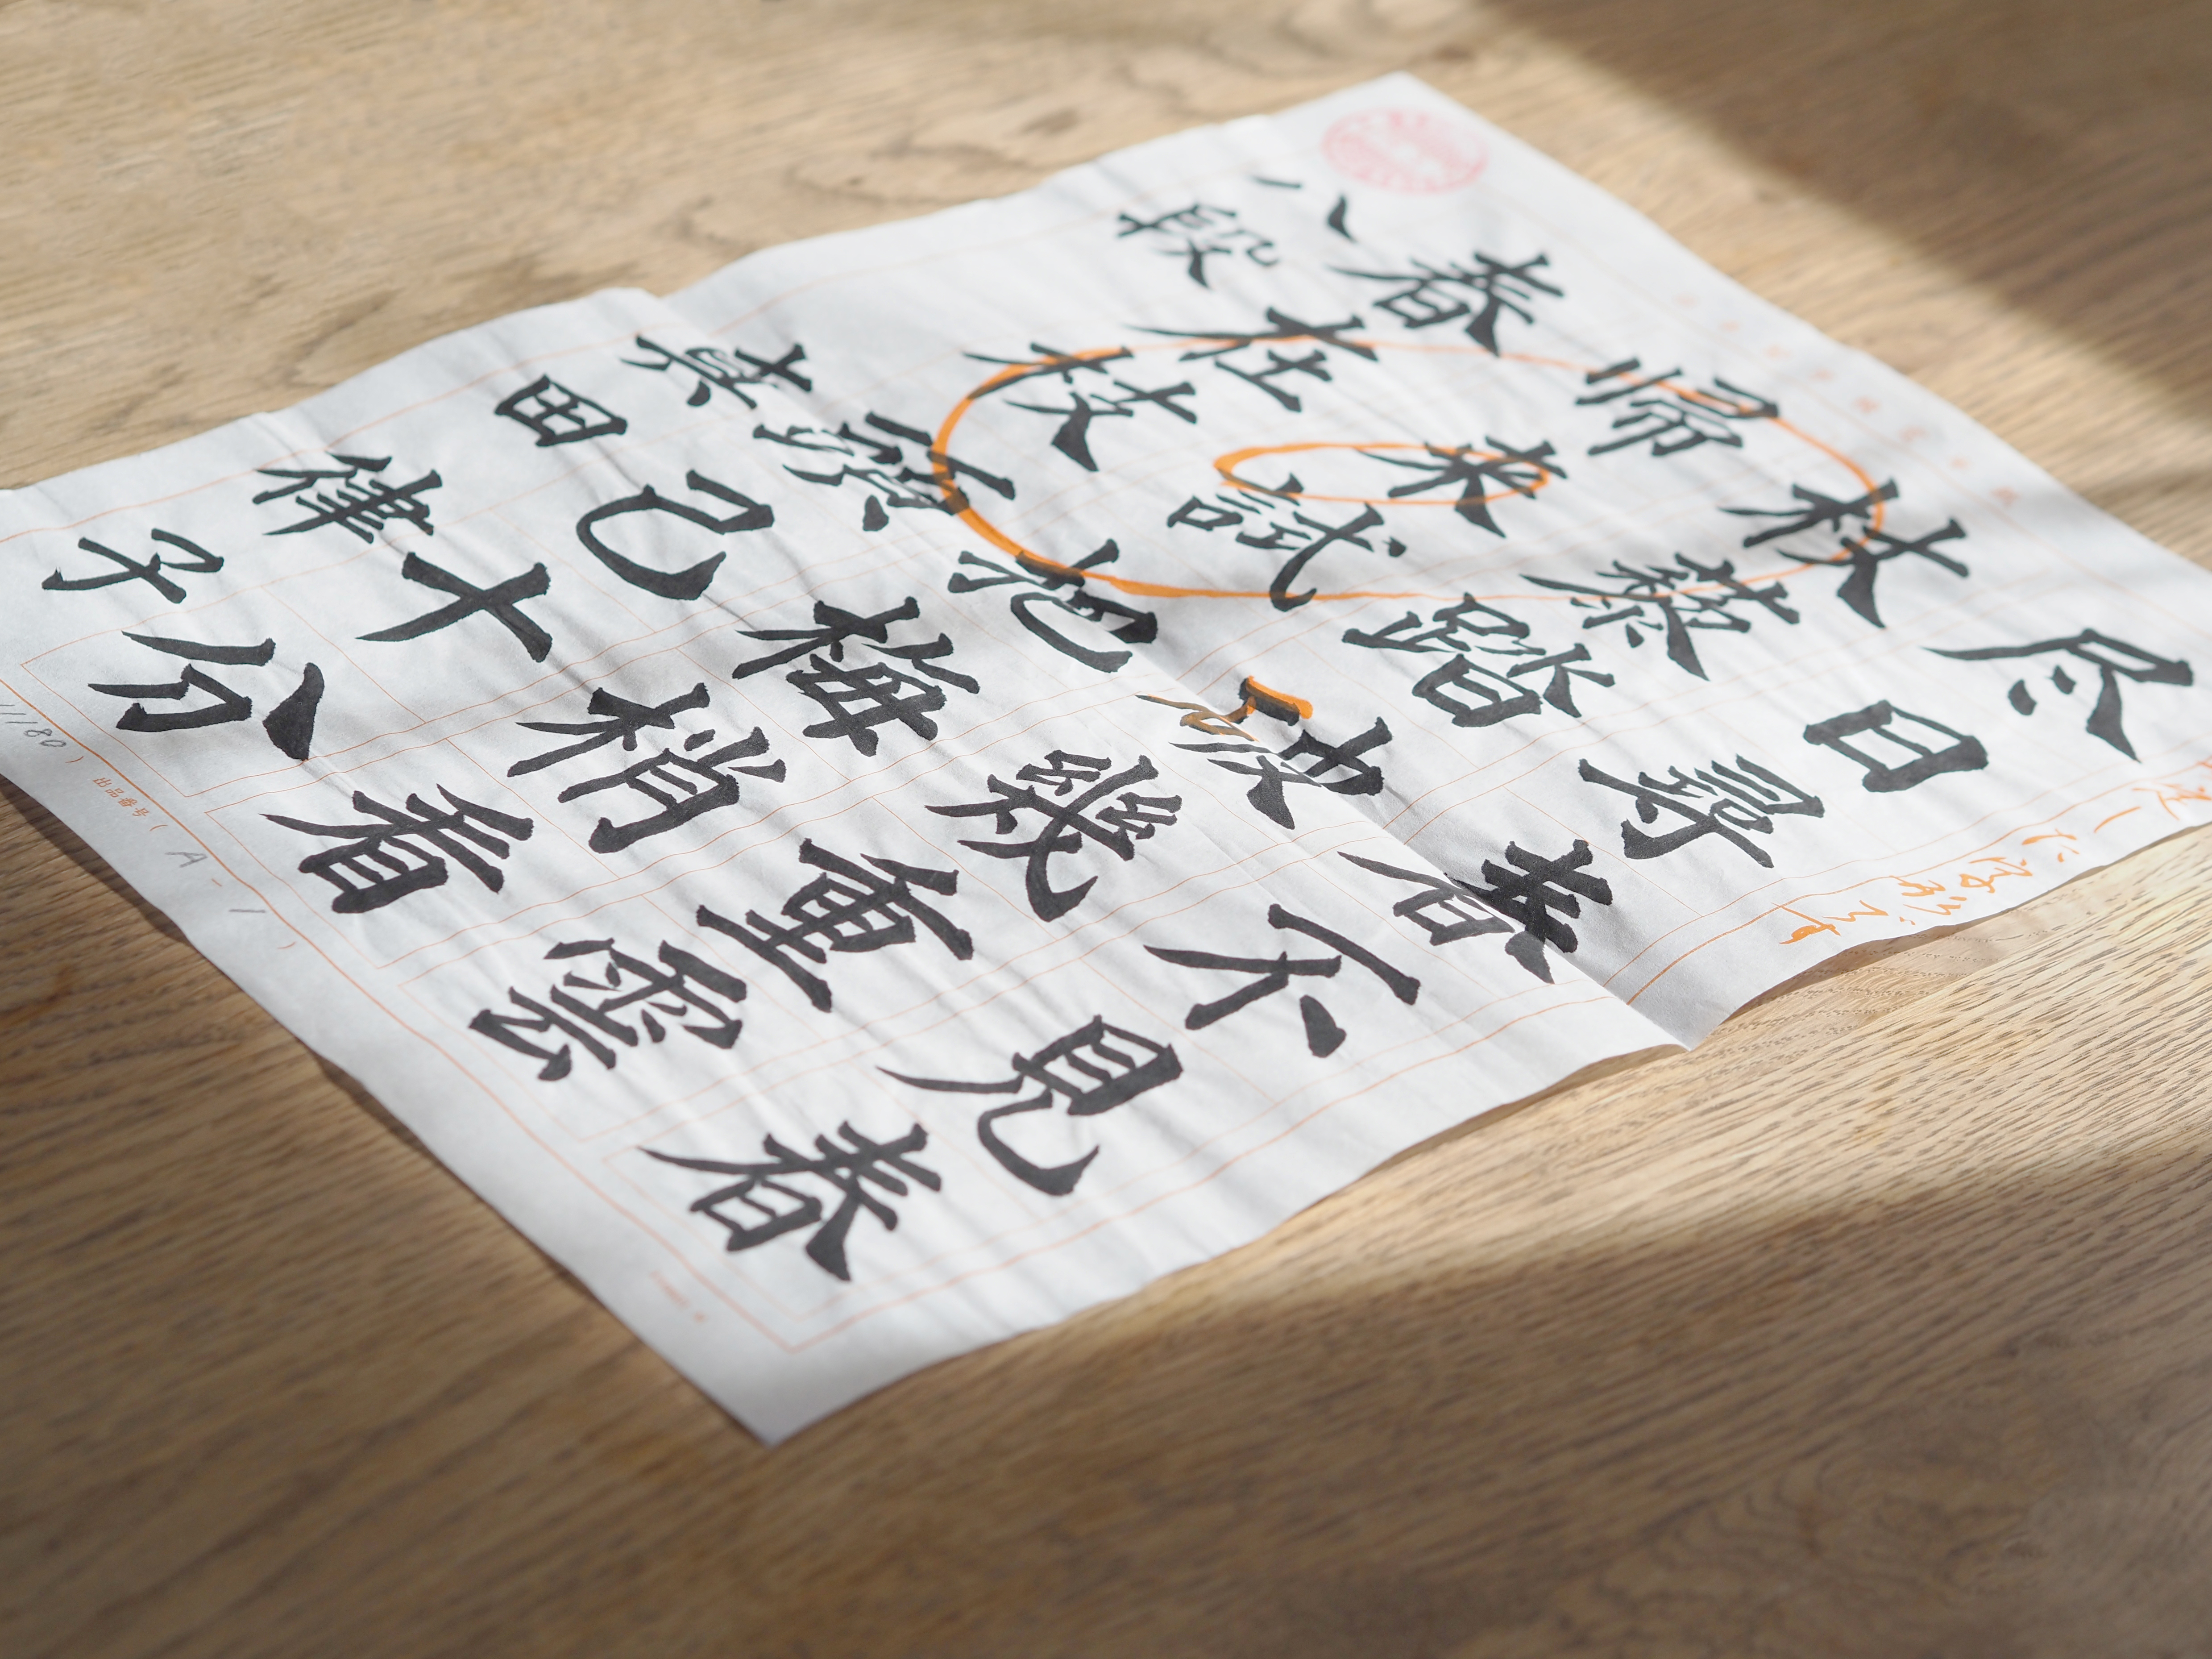 尽日尋春不見春
杖藜踏破幾重雲
帰来試把梅梢看
春在枝頭已十分
八段 真田律子
出品番号( A-1 )